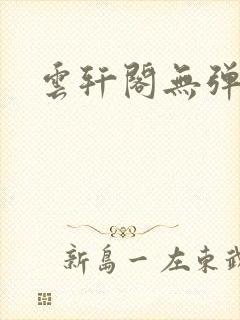 雲軒閣無弹
新島一左東武